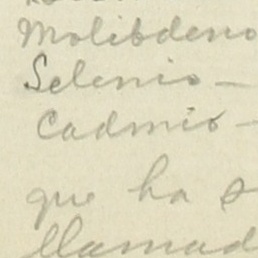 Molibdeno
Selenio —
Cadmio —
que ha s
llamad